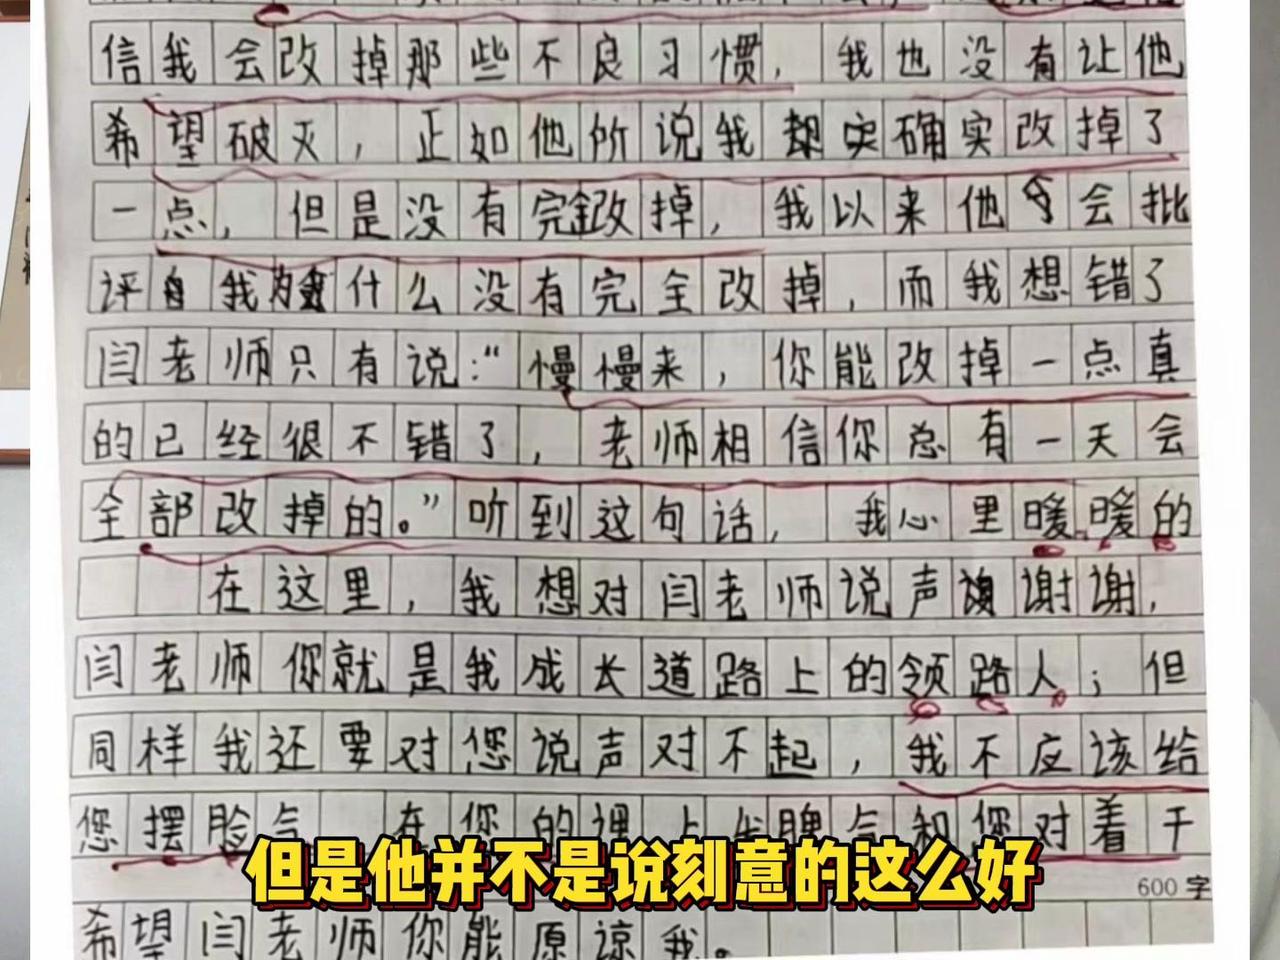 信我会改掉那些不良习惯，我也没有让他
希望破灭，正如他所说我却实确实改掉了
一点，但是没有完全改掉，我以来他会批
评我什么没有完全改掉，而我想错了
闫老师只有说：“慢慢来，你能改掉一点真
的已经很不错了，老师相信你总有一天会
全部改掉的。”听到这句话，我心里暖暖的
在这里，我想对闫老师说声谢谢，
闫老师你就是我成长道路上的领路人；但
同样我还要对您说声对不起，我不应该给
您摆脸气 在您的课上发脾气和您对着干
但是他并不是说刻意的这么好
600字
希望闫老师你能原谅我。